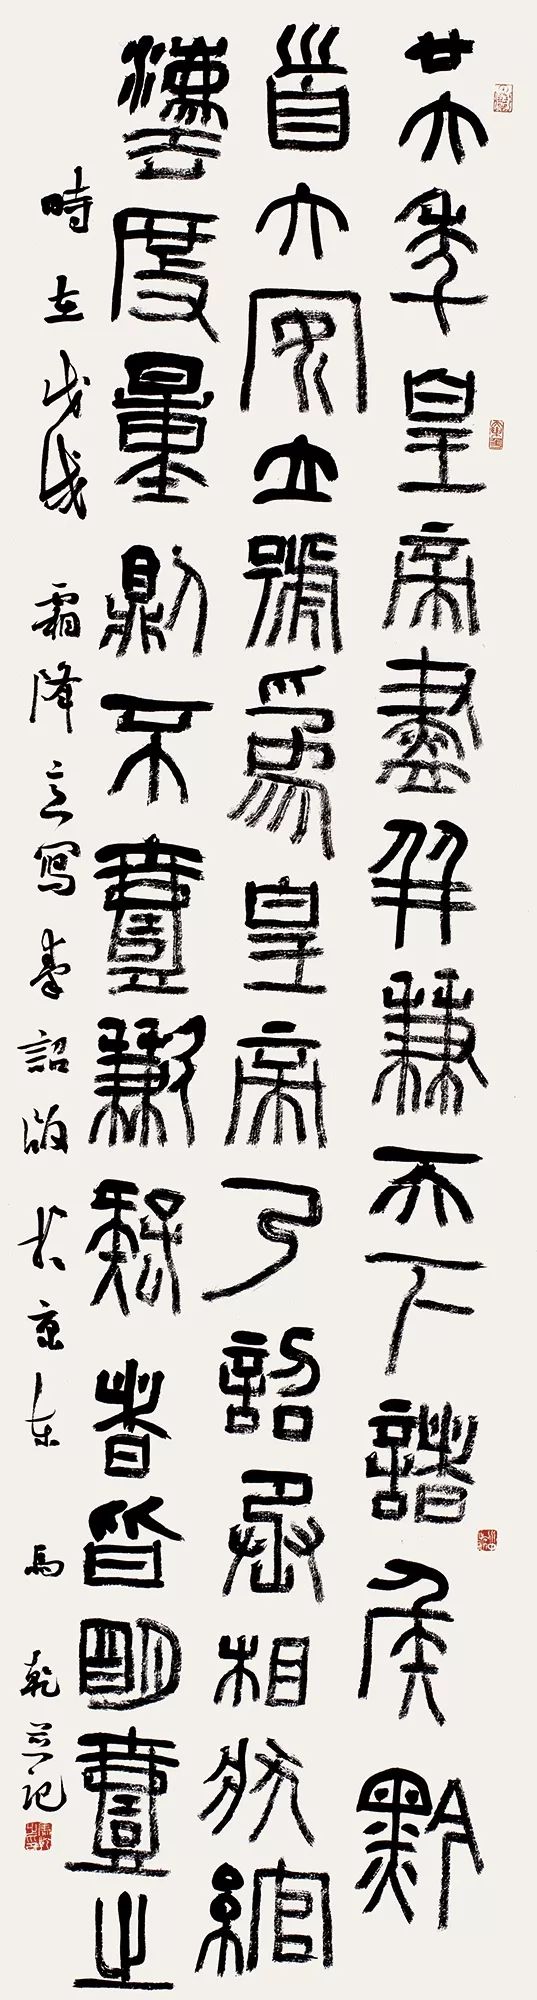 廿六年皇帝盡并兼天下諸侯黔
首大安立號為皇帝乃詔丞相狀綰
灋度量則不壹歉疑者皆明壹之
時在戊戌霜降意寫秦詔版於京東馬乾記